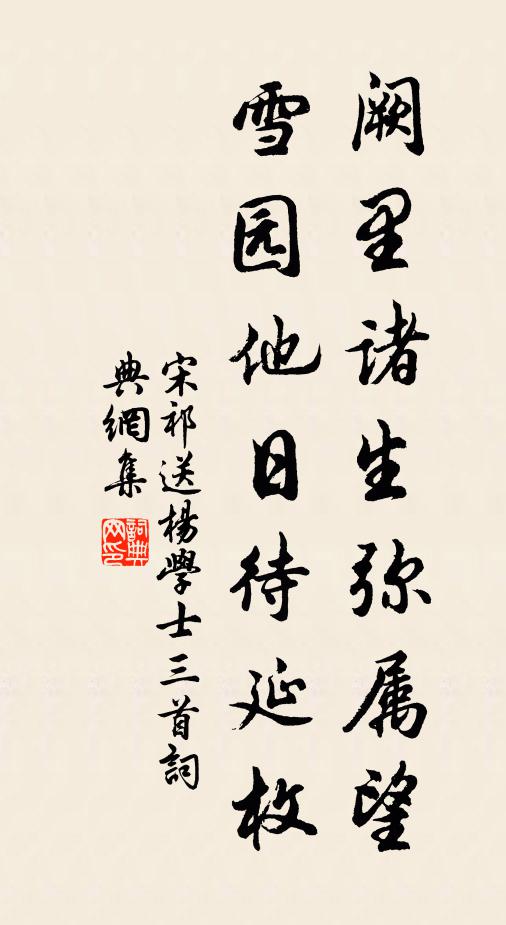 阙里诸生弥属望
雪园他日待延枚
宋祁送楊學士三首詞
典網集
詞典
网印